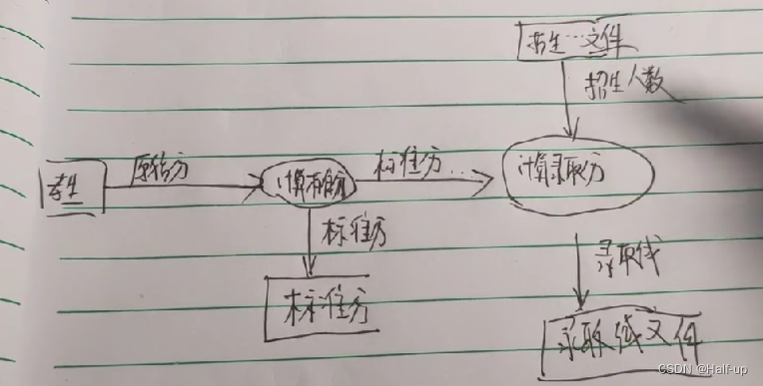 招生…文件
招生人数
考生
原始分
计算标准分
标准分…
计算录取分
标准分
标准分
录取线
录取线文件
CSDN @Half-up